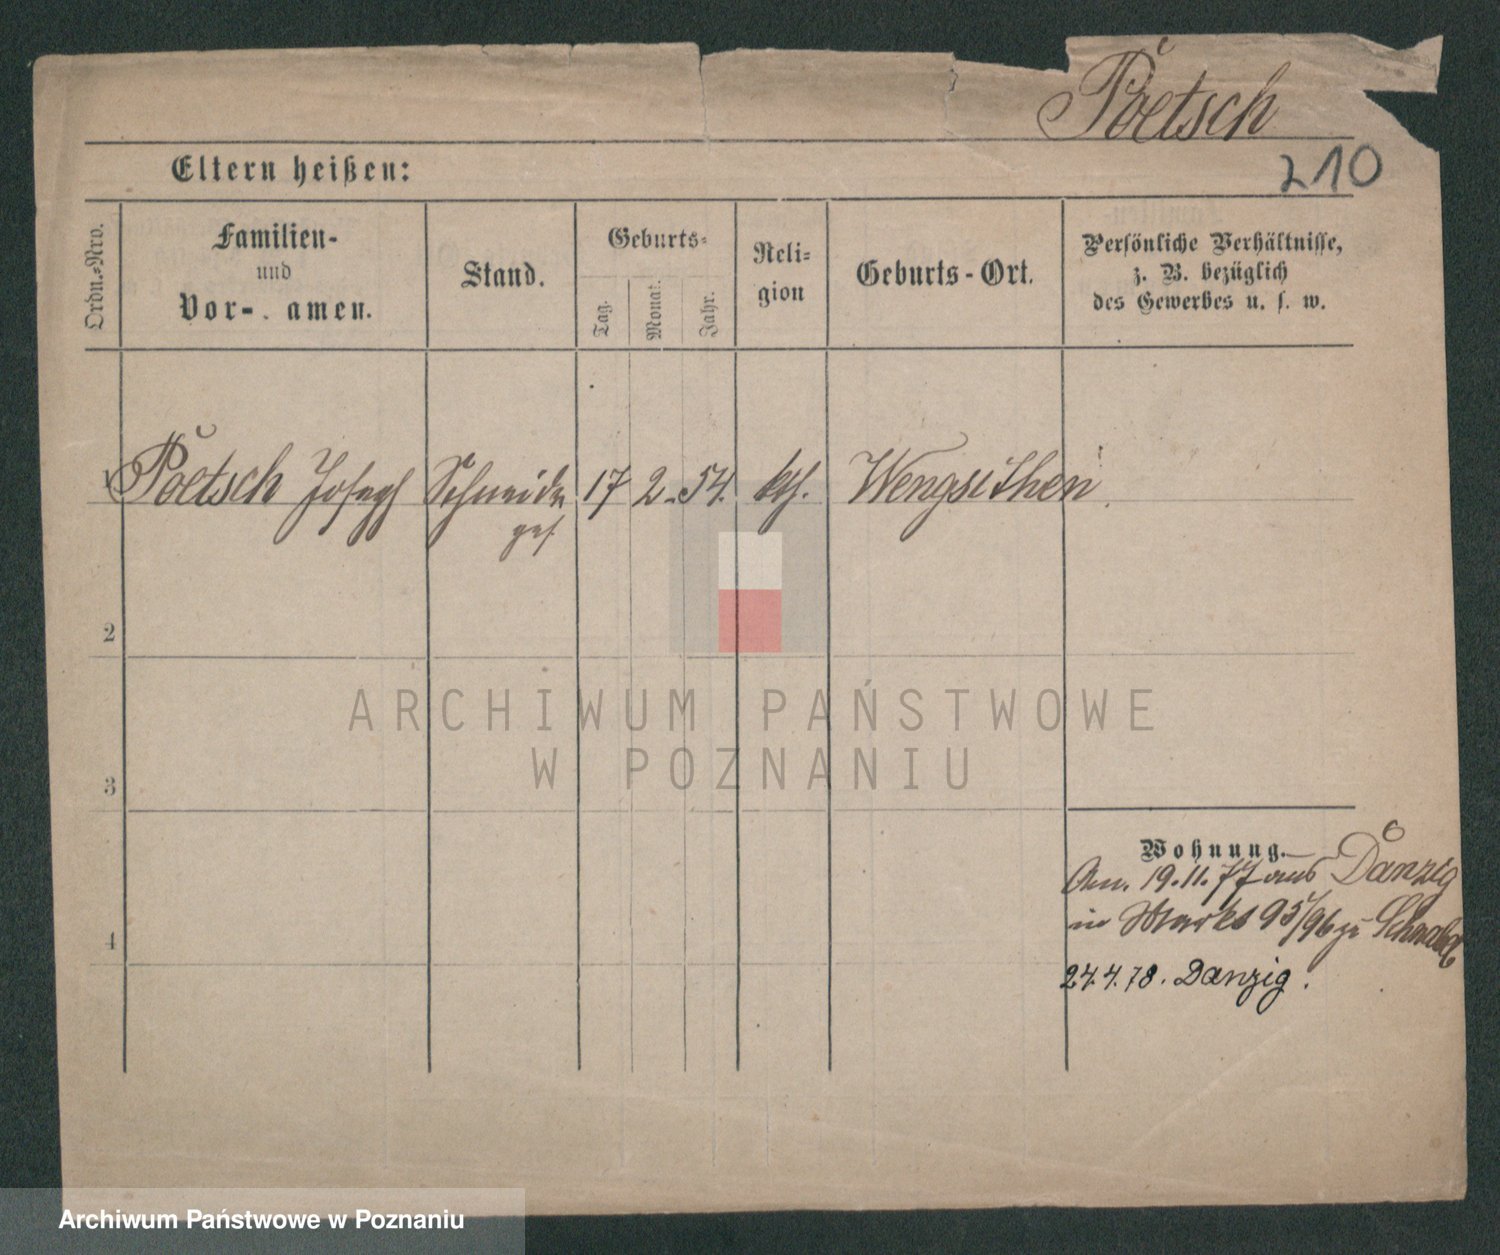 Poetsch
210
Eltern heißen:
Ordn.-Nro.
Familien-
und
Vor- amen.
Stand.
Geburts-
Tag.
Monat.
Jahr.
Reli-
gion
Geburts-Ort.
Persönliche Verhältnisse,
z. B. bezüglich
des Gewerbes u. s. w.
Poetsch Joseph Schneider 17 2. 54. kth. Wengsithen
ges.
2
3
4
Wohnung.
An. 19.11.77 aus Danzig
in Markt 95/96 zu
24.4.78. Danzig.
ARCHIWUM PAŃSTWOWE
W POZNANIU
Archiwum Państwowe w Poznaniu